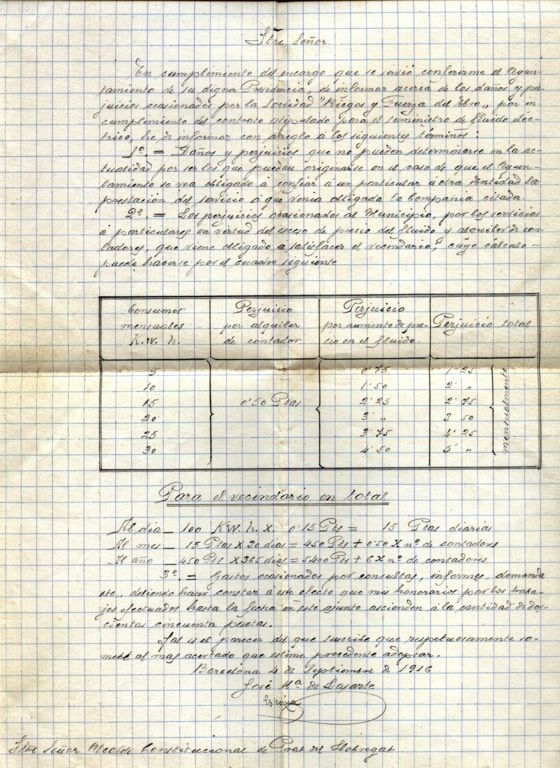 Iltre Señor
En cumplimiento del encargo que se sirvió conferirme el Ayun-
tamiento de su digna Presidencia, de informar acerca de los daños y per-
juicios ocasionados por la Sociedad "Riegos y Fuerza del Ebro„ por in-
cumplimiento del contrato estipulado para el suministro de fluido eléc-
trico, he de informar con arreglo a los siguientes términos:
1º. = Daños y perjuicios que no pueden determinarse en la ac-
tualidad por ser los que puedan originarse en el caso de que el Ayun-
tamiento se vea obligado á confiar á un particular u otra entidad la
prestación del servicio á que venía obligada la Compañía citada.
2º. = Los perjuicios ocasionados al Municipio, por los servicios
á particulares en virtud del exceso de precio del fluido y alquiler de con-
tadores, que viene obligado a satisfacer el vecindario, cuyo cálculo
puede hacerse por el cuadro siguiente
Consumos mensuales K.W.h. Perjuicio por alquiler de contador Perjuicio por aumento de pre- cio en el fluido Perjuicio total
5 0'75 1'25
10 1'50 2' „
15 0'50 Ptas 2'25 2'75
20 3' „ 3'50
25 3'75 4'25
30 4'50 5' „
mensualmente
Para el vecindario en total
Al dia _ 100 K.W.h. X. 0'15 Pts = 15 Ptas diarias
Al mes _ 15 Ptas X 30 dias = 450 Pts + 0'50 X nº de contadores
Al año _ 450 Pts X 365 dias = 5400 Pts + 6 X nº de contadores
3º. = Gastos ocasionados por consultas, informes, demanda
etc, debiendo hacer constar á este efecto que mis honorarios por los traba-
jos efectuados hasta la fecha en este asunto ascienden á la cantidad de dos-
cientas cincuenta pesetas.
Tal es el parecer del que suscribe que respetuosamente so-
mete al mas acertado que estime procedente adoptar.
Barcelona 4 de Septiembre de 1916
José Mª de Lasarte
Iltre Señor Alcalde Constitucional de Prat del Llobregat